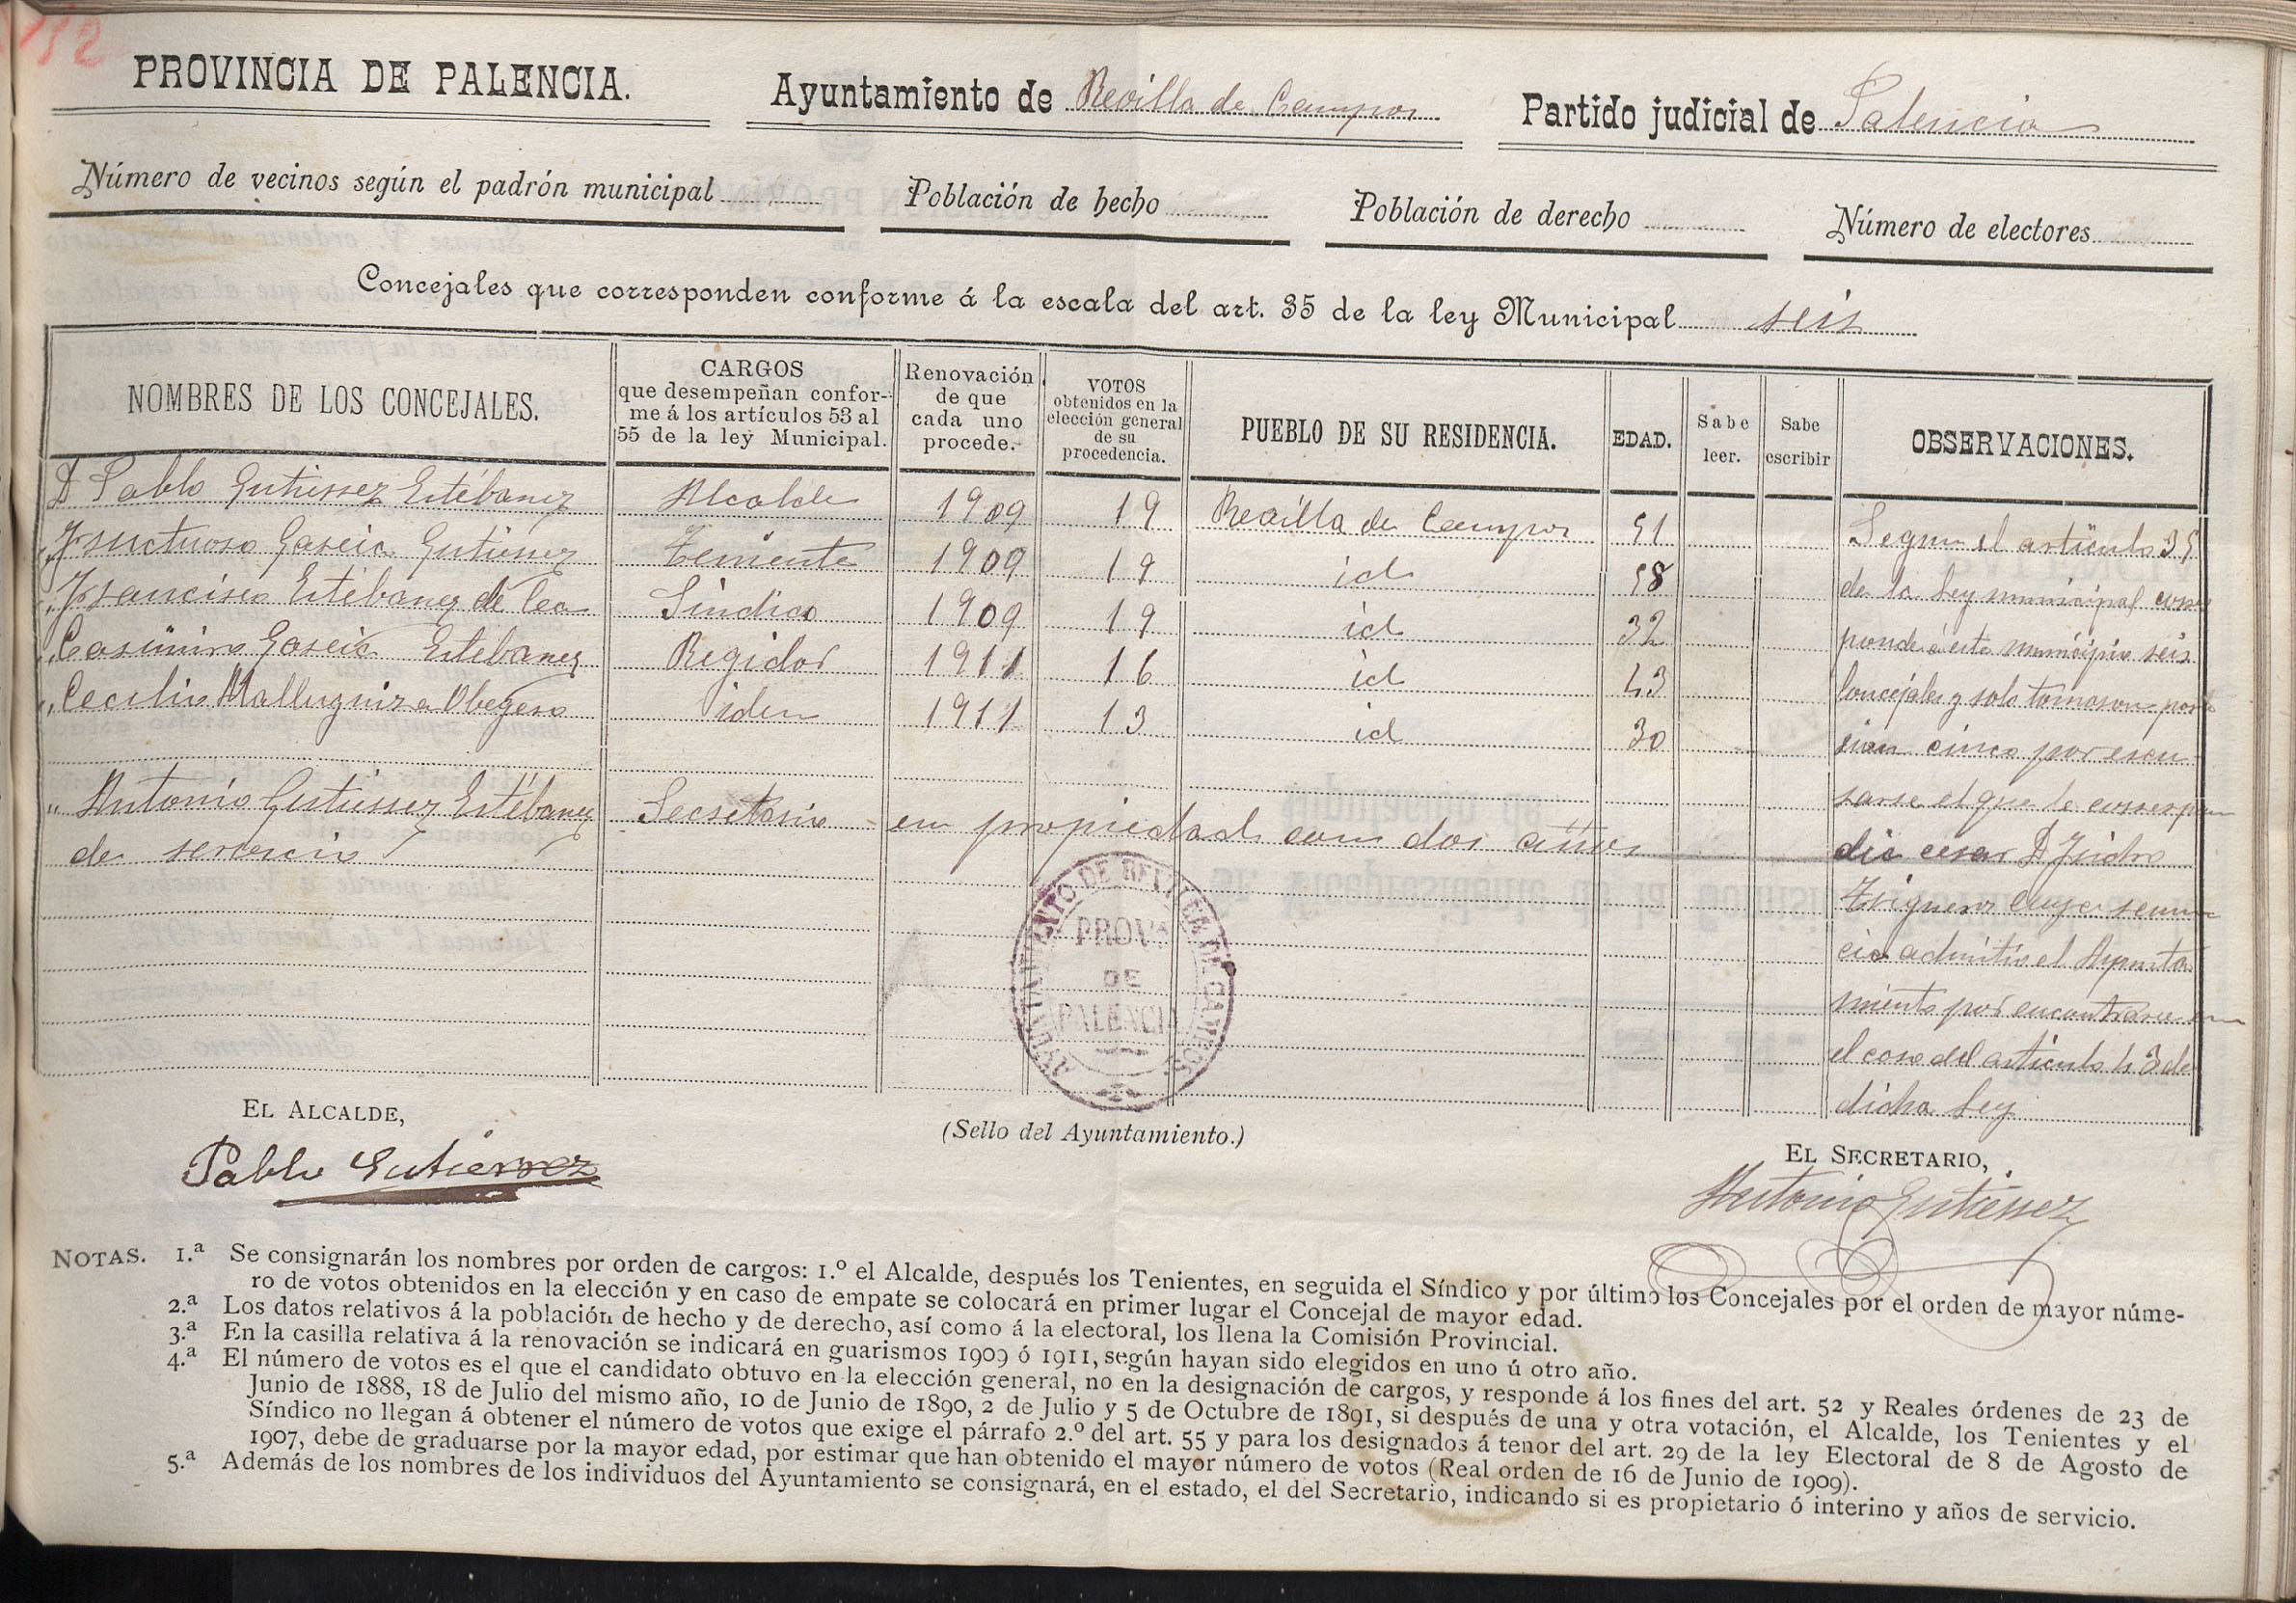 112
PROVINCIA DE PALENCIA. Ayuntamiento de Revilla de Campos Partido judicial de Palencia
Número de vecinos según el padrón municipal Población de hecho Población de derecho Número de electores
Concejales que corresponden conforme á la escala del art. 35 de la ley Municipal seis
NOMBRES DE LOS CONCEJALES. CARGOS que desempeñan confor-me á los artículos 53 al 55 de la ley Municipal. Renovación de que cada uno procede. VOTOS obtenidos en la elección general de su procedencia. PUEBLO DE SU RESIDENCIA. EDAD. Sabe leer. Sabe escribir OBSERVACIONES.
D Pablo Gutierrez Estébanez Alcalde 1909 19 Revilla de Campos 51
" Fructuoso Garcia Gutierrez Teniente 1909 19 id 58
" Francisco Estébanez de Cea Sindico 1909 19 id 32
" Casimiro Garcia Estébanez Regidor 1911 16 id 43
" Cecilio Obegero iden 1911 13 id 30
" Antonio Gutierrez Estébanez Secretario en propiedad con dos años
de servicio
Segun el articulo 35
de la Ley municipal corres
ponde á este municipio seis
Concejales y solo tomaron pose
sion cinco por escu
sarse el que le correspon
dia cesar D Isidro
Triguero cuya renun
cia admitio el Ayunta
miento por encontrarse en
el caso del articulo 43 de
dicha Ley
AYUNTAMIENTO DE REVILLA DE CAMPOS
PROVª
DE
PALENCIA
EL ALCALDE,
Pablo Gutierrez
(Sello del Ayuntamiento.)
EL SECRETARIO,
Antonio Gutierrez
NOTAS. 1.ª Se consignarán los nombres por orden de cargos: 1.º el Alcalde, después los Tenientes, en seguida el Síndico y por último los Concejales por el orden de mayor núme-
ro de votos obtenidos en la elección y en caso de empate se colocará en primer lugar el Concejal de mayor edad.
2.ª Los datos relativos á la población de hecho y de derecho, así como á la electoral, los llena la Comisión Provincial.
3.ª En la casilla relativa á la renovación se indicará en guarismos 1909 ó 1911, según hayan sido elegidos en uno ú otro año.
4.ª El número de votos es el que el candidato obtuvo en la elección general, no en la designación de cargos, y responde á los fines del art. 52 y Reales órdenes de 23 de
Junio de 1888, 18 de Julio del mismo año, 10 de Junio de 1890, 2 de Julio y 5 de Octubre de 1891, si después de una y otra votación, el Alcalde, los Tenientes y el
Síndico no llegan á obtener el número de votos que exige el párrafo 2.º del art. 55 y para los designados á tenor del art. 29 de la ley Electoral de 8 de Agosto de
1907, debe de graduarse por la mayor edad, por estimar que han obtenido el mayor número de votos (Real orden de 16 de Junio de 1909).
5.ª Además de los nombres de los individuos del Ayuntamiento se consignará, en el estado, el del Secretario, indicando si es propietario ó interino y años de servicio.